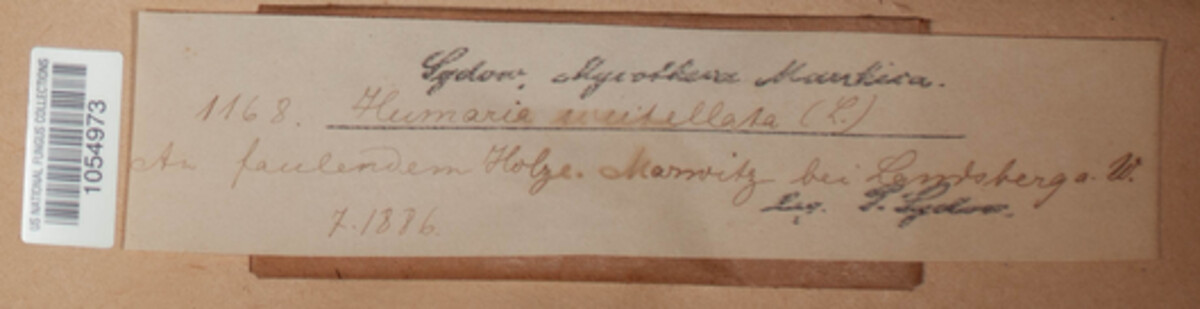 US NATIONAL FUNGUS COLLECTIONS
1054973
Sydow, Mycotheca Marchica.
1168. Humaria scutellata (L.)
An faulendem Holze. Marwitz bei Landsberg a. W.
7.1886.
Leg. P. Sydow.